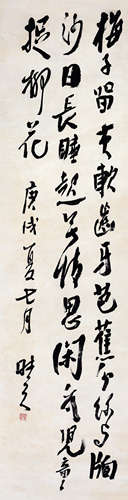 梅子留酸軟齒牙芭蕉分綠与窗
紗日長睡起無情思閑看兒童
捉柳花 庚戌夏七月